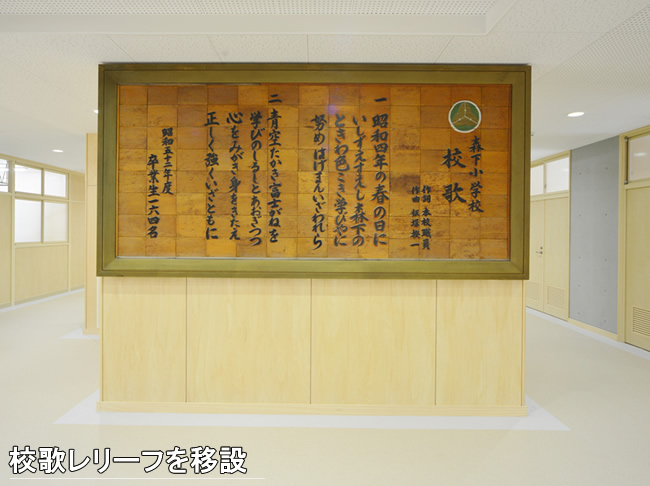 森下小学校
校歌
作詞 本校職員
作曲 飯塚教一
一 昭和四年の春の日に
いしずえすえし森下の
ときわ色こき学びやに
努めはげまんいざわれら
二 青空たかき富士がねを
学びのしるしとあおぎつつ
心をみがき身をきたえ
正しく強くいざともに
昭和五十三年度
卒業生一六四名
校歌レリーフを移設